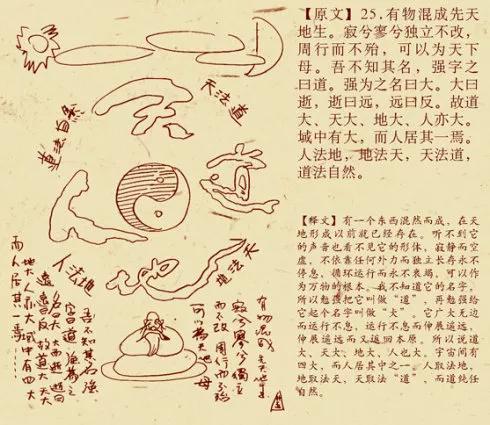 天法道
道法自然
人法地
有物混成 先天地生
寂兮寥兮 獨立
而不改 周行而不殆
可以為天地母
吾不知其名強
字曰道 強為之
名曰大 大曰逝 逝曰
遠 遠曰反 故道大 天大
地大 人亦大 域中有四大
而人居其一焉
【原文】25.有物混成先天
地生。寂兮寥兮独立不改，
周行而不殆，可以为天下
母。吾不知其名，强字之
曰道。强为之名曰大。大曰
逝，逝曰远，远曰反。故道
大、天大、地大、人亦大。
域中有大，而人居其一焉。
人法地，地法天，天法道，
道法自然。
【释文】有一个东西混然而成，在天
地形成以前就已经存在。听不到它
的声音也看不见它的形体，寂静而空
虚，不依靠任何外力而独立长存永不
停息，循环运行而永不衰竭，可以作
为万物的根本。我不知道它的名字，
所以勉强把它叫做“道”，再勉强给
它起个名字叫做“大”。它广大无边
而运行不息，运行不息而伸展遥远，
伸展遥远而又返回本原。所以说道
大、天大、地大、人也大。宇宙间有
四大，而人居其中之一。人取法地，
地取法天，天取法“道”，而道纯任
自然。